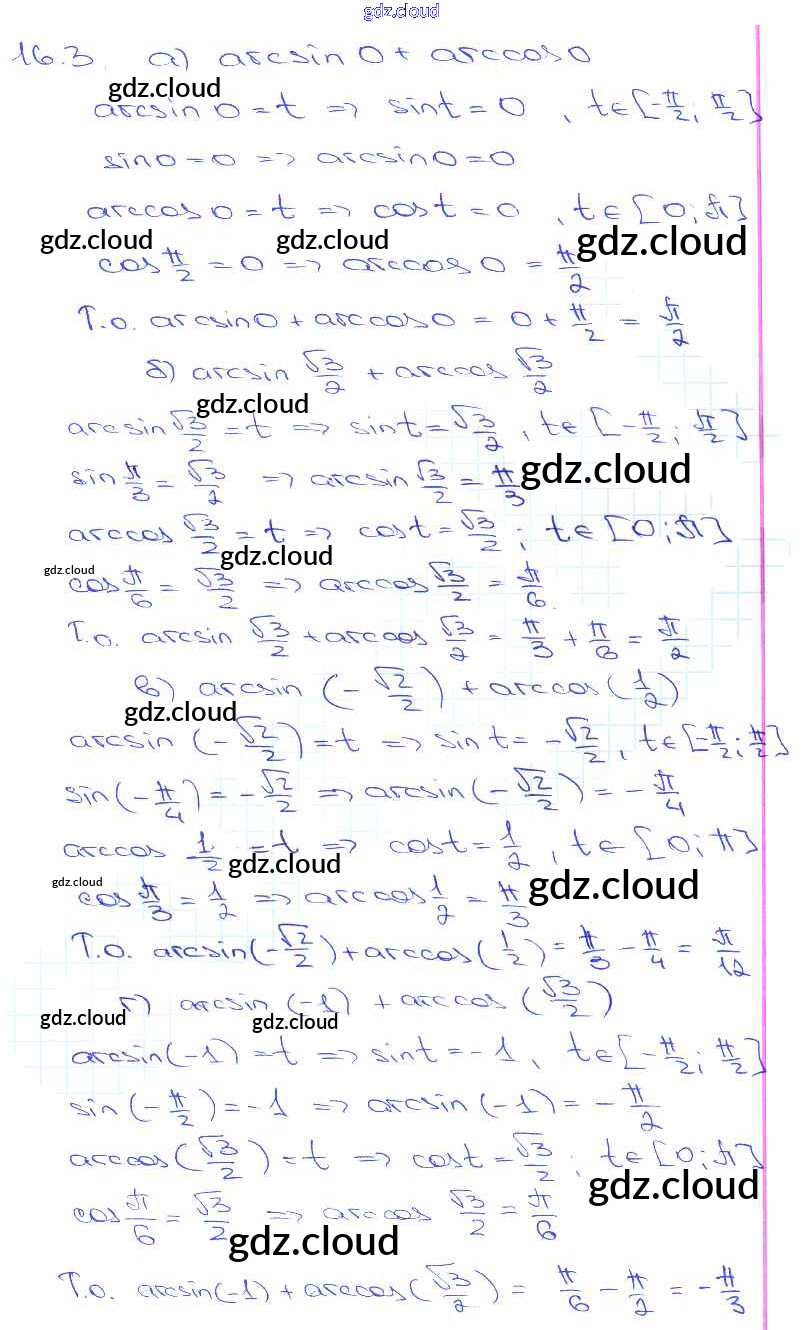 gdz.cloud
16.3. а) arcsin 0 + arccos 0
gdz.cloud
arcsin 0 = t => sin t = 0, t ∈ [-π/2; π/2]
sin 0 = 0 => arcsin 0 = 0
arccos 0 = t => cos t = 0, t ∈ [0; π]
gdz.cloud gdz.cloud gdz.cloud
cos π/2 = 0 => arccos 0 = π/2
Т.о. arcsin 0 + arccos 0 = 0 + π/2 = π/2
б) arcsin √3/2 + arccos √3/2
gdz.cloud
arcsin √3/2 = t => sin t = √3/2, t ∈ [-π/2; π/2]
sin π/3 = √3/2 => arcsin √3/2 = π/3
gdz.cloud
arccos √3/2 = t => cos t = √3/2; t ∈ [0; π]
gdz.cloud
gdz.cloud
cos π/6 = √3/2 => arccos √3/2 = π/6.
Т.о. arcsin √3/2 + arccos √3/2 = π/3 + π/6 = π/2
в) arcsin (-√2/2) + arccos (1/2)
gdz.cloud
arcsin (-√2/2) = t => sin t = -√2/2, t ∈ [-π/2; π/2]
sin (-π/4) = -√2/2 => arcsin (-√2/2) = -π/4
arccos 1/2 = t => cos t = 1/2, t ∈ [0; π]
gdz.cloud
gdz.cloud gdz.cloud
cos π/3 = 1/2 => arccos 1/2 = π/3
Т.о. arcsin (-√2/2) + arccos (1/2) = π/3 - π/4 = π/12
г) arcsin (-1) + arccos (√3/2)
gdz.cloud gdz.cloud
arcsin (-1) = t => sin t = -1, t ∈ [-π/2; π/2]
sin (-π/2) = -1 => arcsin (-1) = -π/2
arccos (√3/2) = t => cos t = √3/2; t ∈ [0; π]
gdz.cloud
cos π/6 = √3/2 => arccos √3/2 = π/6
gdz.cloud
Т.о. arcsin (-1) + arccos (√3/2) = π/6 - π/2 = -π/3